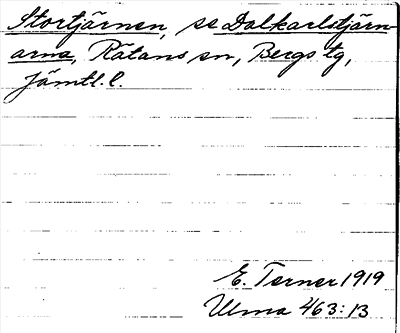 Stortjärnen, se Dalkarlstjärn-
arna, Rätans sn, Bergs tg,
Jämtl. l.
E. Terner 1919
Ulma 463:13